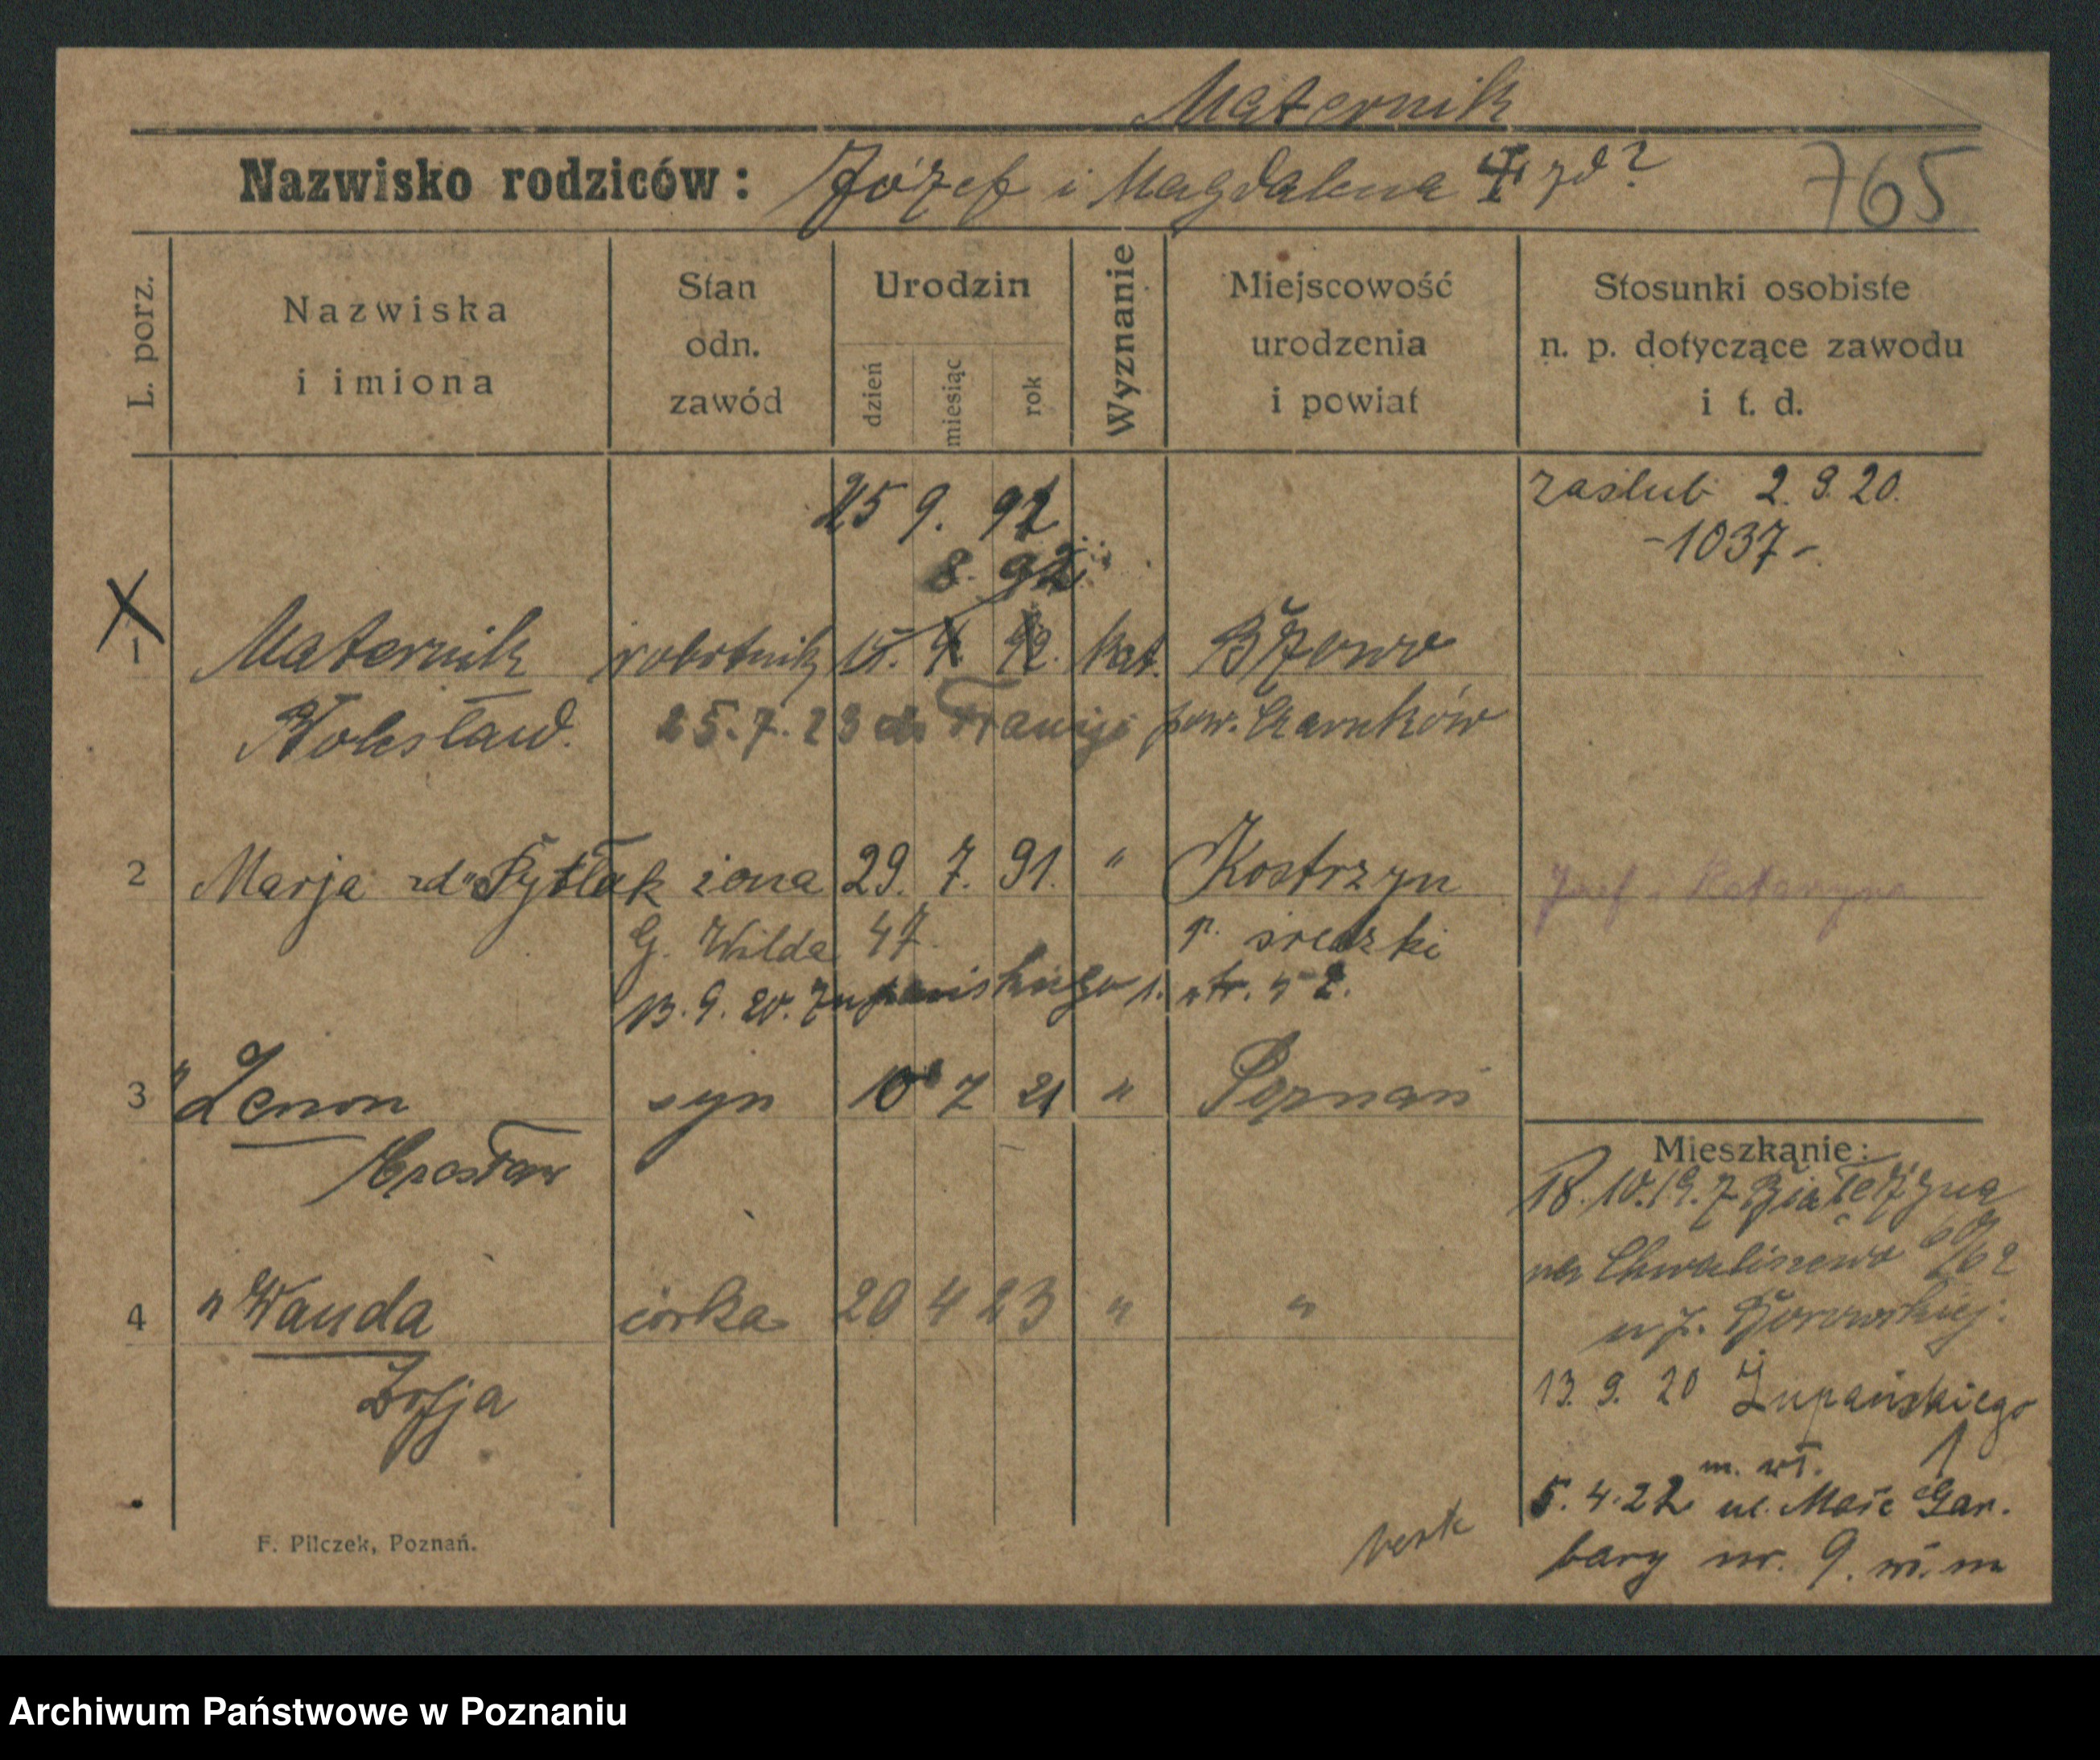 Maternik
Nazwisko rodziców: Józef i Magdalena zd?
765
L. porz.
Nazwiska
i imiona
Stan
odn.
zawód
Urodzin
dzień
miesiąc
rok
Wyznanie
Miejscowość
urodzenia
i powiat
Stosunki osobiste
n. p. dotyczące zawodu
i t. d.
25 9. 92
zaślub 2. 9. 20.
-1037-
8. 92
1 Maternik robotnik 15. kat. Bżowo
Bolesław. 25.7.23 do Francji pow. Czarnków
2 Marja zd. Pytlak żona 29. 7. 91. " Kostrzyn
Józef i Katarzyna
G. Wilda 47. p. średzki
13. 9. 20. Żupańskiego 1. str.
3 " Zenon syn 10 7 21 " Poznań
Czesław
4 " Wanda córka 20 4 23 " "
Zofja
Mieszkanie:
18. 10. 19. z Białężyna
na Chwaliszewo 60/62
u J. Borowskiej.
13. 9. 20 Żupańskiego
1
m. wł.
5. 4. 22 ul. Małe Gar.
bary nr. 9. wł. m
F. Pilczek, Poznań.
Archiwum Państwowe w Poznaniu